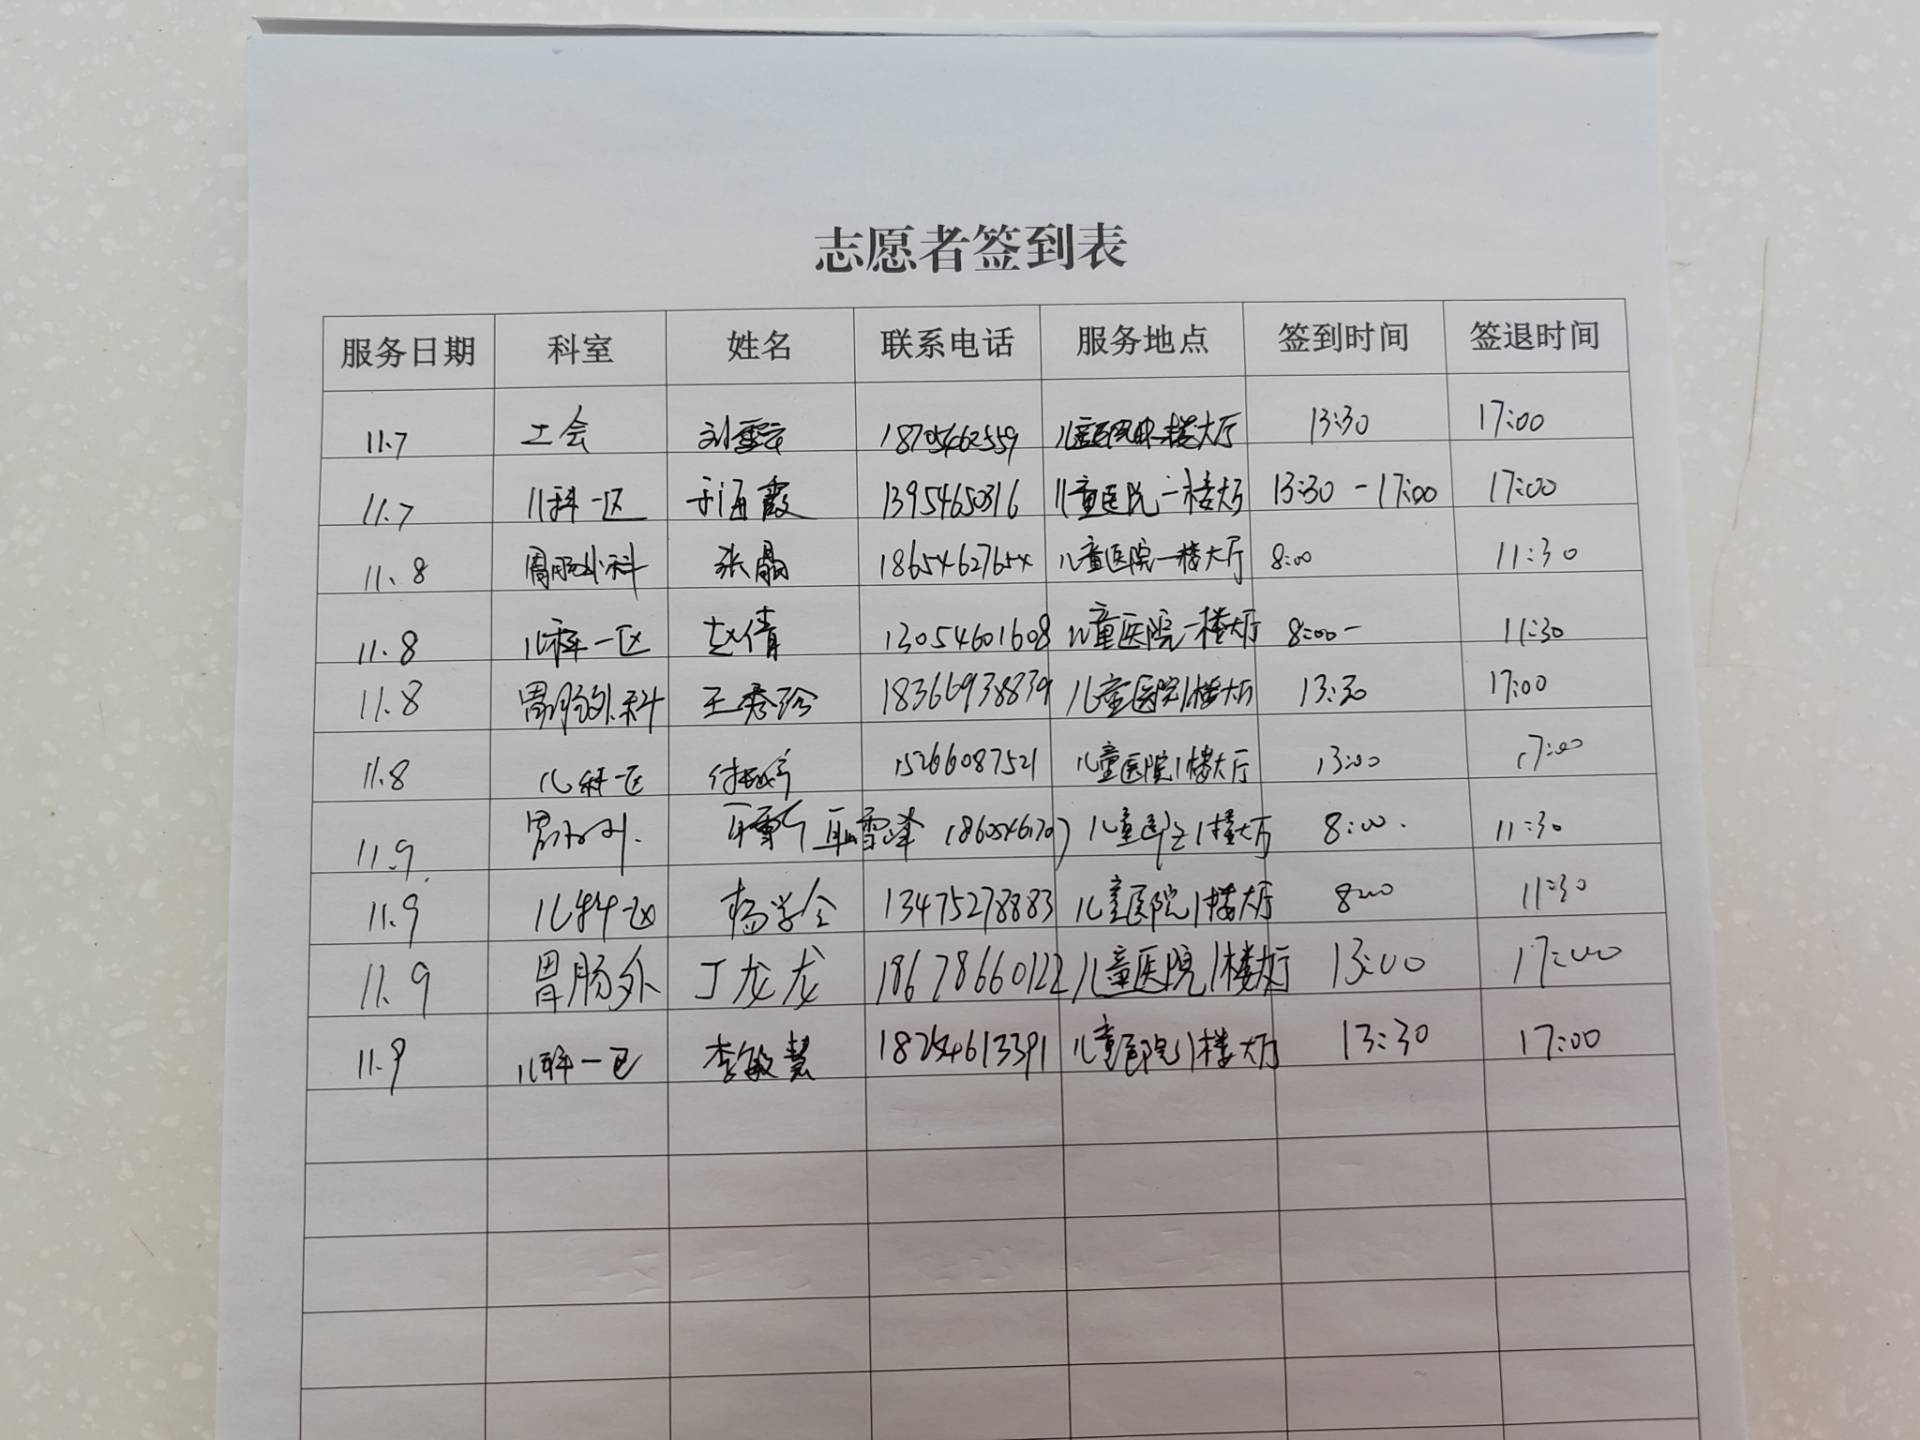 志愿者签到表
服务日期 科室 姓名 联系电话 服务地点 签到时间 签退时间
11.7 工会 18705462559 儿童医院一楼大厅 13:30 17:00
11.7 儿科一区 于海霞 13954650316 儿童医院一楼大厅 13:30-17:00 17:00
11.8 胃肠外科 张晶 18654627654 儿童医院一楼大厅 8:00 11:30
11.8 儿科一区 赵倩 13054601608 儿童医院一楼大厅 8:00- 11:30
11.8 胃肠外科 王秀玲 18366938839 儿童医院1楼大厅 13:30 17:00
11.8 儿科一区 15266087521 儿童医院1楼大厅 13:00 17:00
11.9 胃肠外. 耿雪峰 儿童医院1楼大厅 8:00. 11:30
11.9. 儿科一区 杨学令 13475278883 儿童医院1楼大厅 8:00 11:30
11.9 胃肠外 丁龙龙 18678660122 儿童医院1楼大厅 13:00 17:00
11.9 儿科一区 李敏慧 18254613391 儿童医院1楼大厅 13:30 17:00